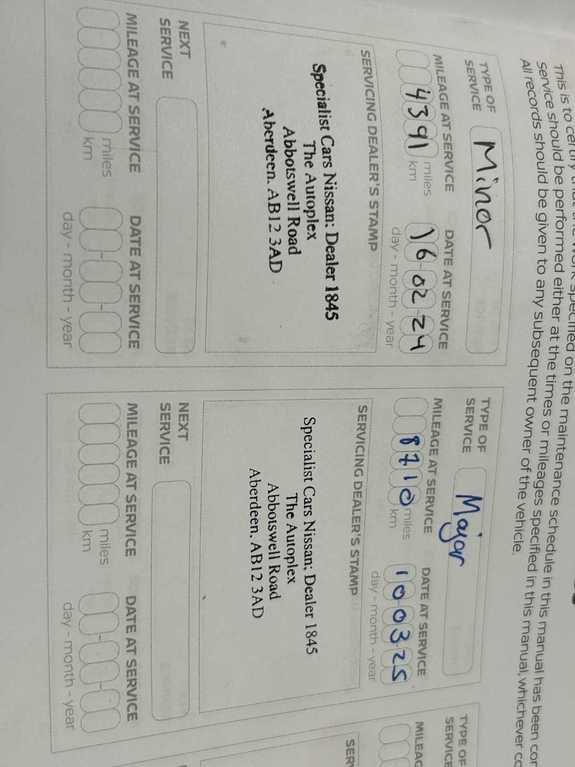 This is to certify that the work specified on the maintenance schedule in this manual has been
Service should be performed either at the times or mileages specified in this manual, whichever
All records should be given to any subsequent owner of the vehicle.
TYPE OF SERVICE
Minor
MILEAGE AT SERVICE
4391
miles
km
DATE AT SERVICE
16-02-24
day - month - year
SERVICING DEALER'S STAMP
Specialist Cars Nissan: Dealer 1845
The Autoplex
Abbotswell Road
Aberdeen. AB12 3AD
NEXT SERVICE
MILEAGE AT SERVICE
miles
km
DATE AT SERVICE
day - month - year
TYPE OF SERVICE
Major
MILEAGE AT SERVICE
8710
miles
km
DATE AT SERVICE
10 03 25
day - month - year
SERVICING DEALER'S STAMP
Specialist Cars Nissan: Dealer 1845
The Autoplex
Abbotswell Road
Aberdeen. AB12 3AD
NEXT SERVICE
MILEAGE AT SERVICE
miles
km
DATE AT SERVICE
day - month - year
TYPE OF SERVICE